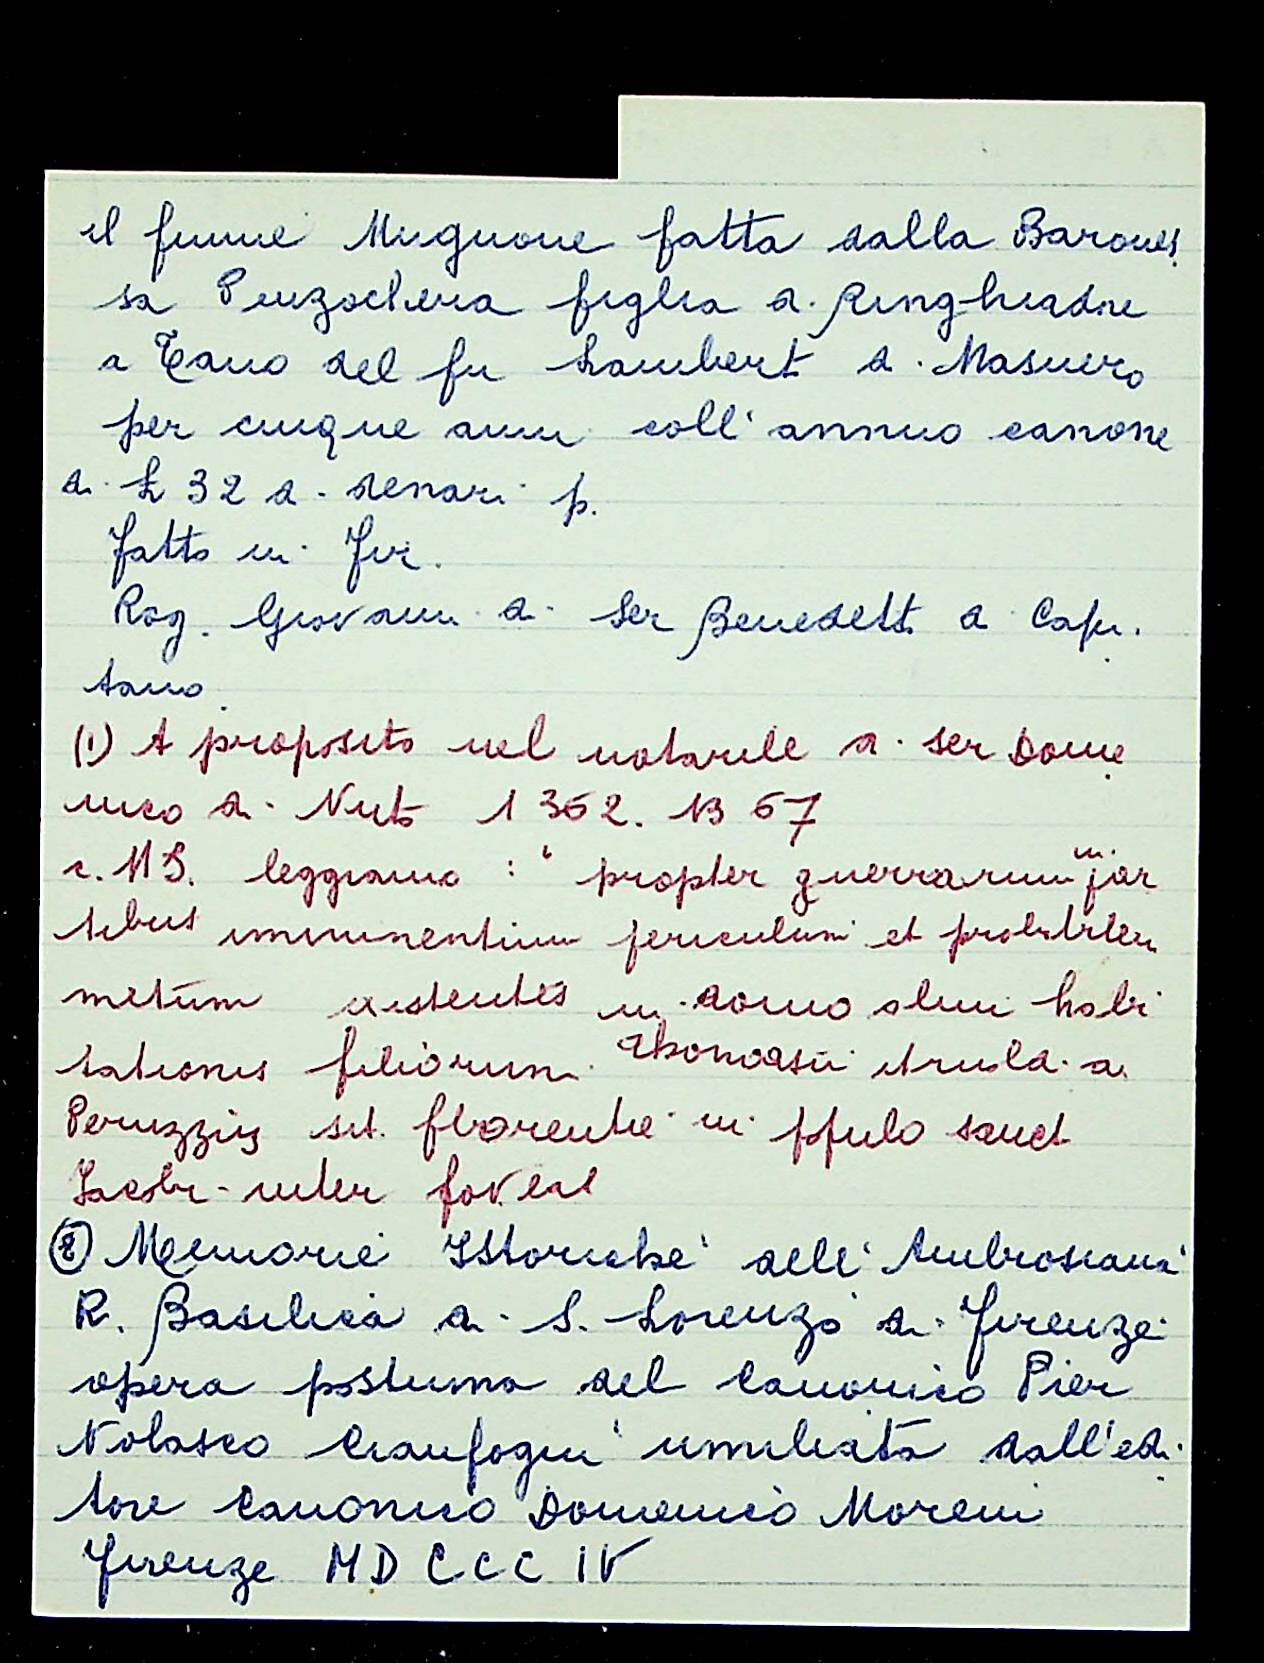 il fiume Mugnone fatta dalla Barones
sa Pinzochera figlia di Ringhiadre
a Tano del fu Lamberti di Masnero
per cinque anni coll' annuo canone
di L 32 di denari p.
fatto in Fir.
Rog. Giovanni di Ser Benedetto di Capi
tano
(1) A proposito nel notarile di ser Dome
nico di Nuto 1362. 1367
c. 113. leggiamo: " propter guerrarum in par
tibus imminentium periculum et
metum existentes in domo olim habi
tationis filiorum a
Peruzziis sit. florentie in ppulo sancti
Jacobi inter foveas
(2) Memorie Istoriche dell' Ambrosiana
R. Basilica di S. Lorenzo di Firenze
opera postuma del Canonico Pier
Nolasco Cianfogni umiliata dall'edi
tore Canonico Domenico Moreni
Firenze MDCCCIV